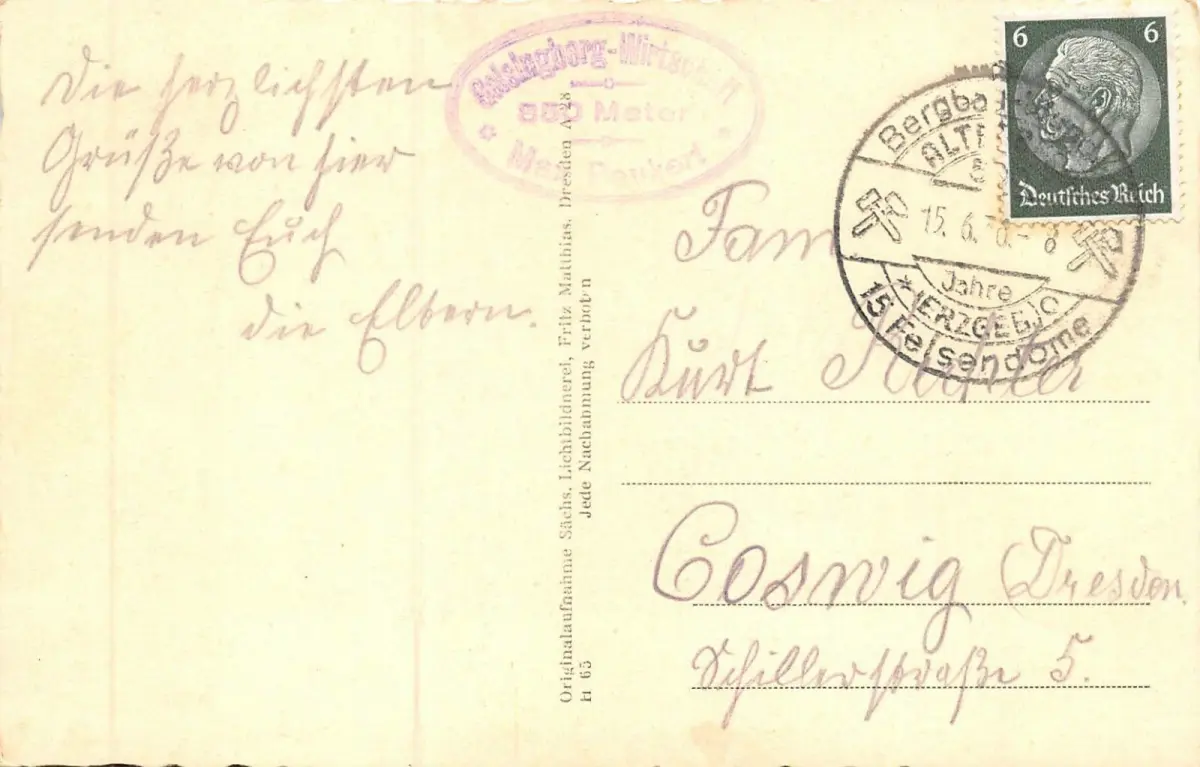 Die herzlichsten
Grüße von hier
senden Euch
die Eltern.
Geisingberg-Wirtschaft
Meter
Max
Originalaufnahme Sächs. Lichtbildnerei, Fritz Matthias, Dresden A 28
Jede Nachahmung verboten
H 65
6 6
Deutsches Reich
15. 6.
Jahre
(ERZGEB.)
15 Felsendome
Fam
Kurt
Coswig (Dresden.
Schillerstraße 5.